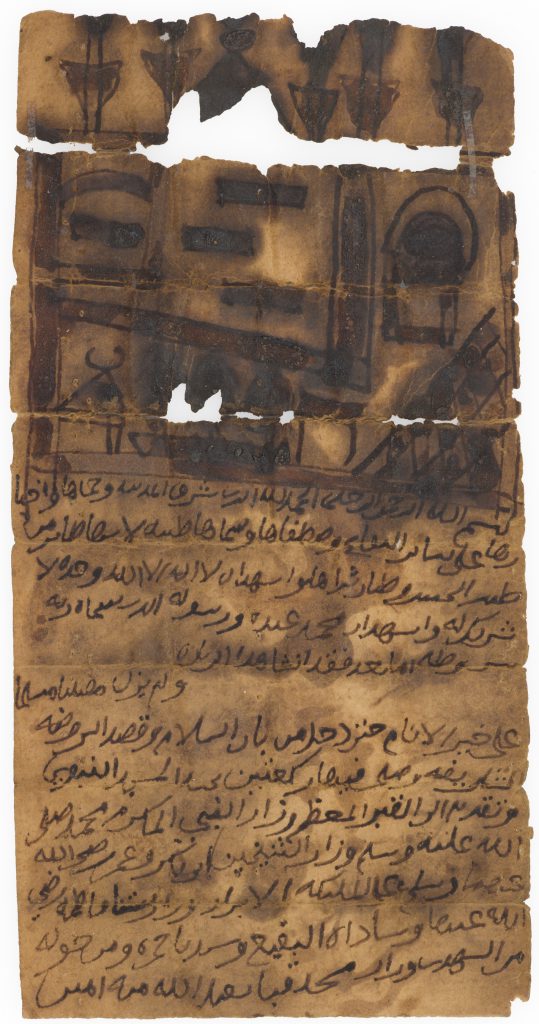 بسم الله الرحمن الرحيم الحمد لله الذي شرف المدينة وحماها واختا
رها على سائر البقاع وصطفاها وسماها طيبة لانها طابت من
طيب الحبيب وطاب ثراها واشهد ان لا اله الا الله وحده لا
شريك له واشهد ان محمد عبده ورسوله الذي سماه ربه
طه اما بعد فقد شاهد الزيارة
ولم يزل مصليا مسلما
على خير الانام حين دخل من باب السلام وقصد الروضه
الشريفه وصلى فيها ركعتين المسجد النبوي
وتقدم الى القبر المعظم وزار النبي المكرم محمد صلى
الله عليه وسلم وزار الشيخين ابى بكر وعمر رضي الله
عنهما وسلم على الملئكة الابرار وزار فاطمة رضي
الله عنها وسادات البقيع وسيدنا حمزه ومن حوله
من الشهدا وزار مسجد قبا الله منه امين